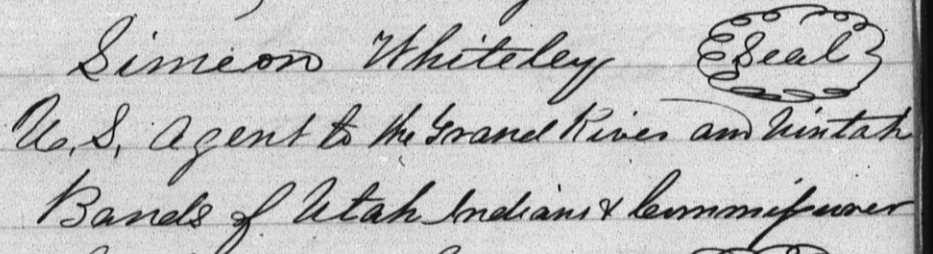 Simeon Whiteley Seal
U.S. Agent to the Grand River and Uintah
Bands of Utah Indians & Commissioner